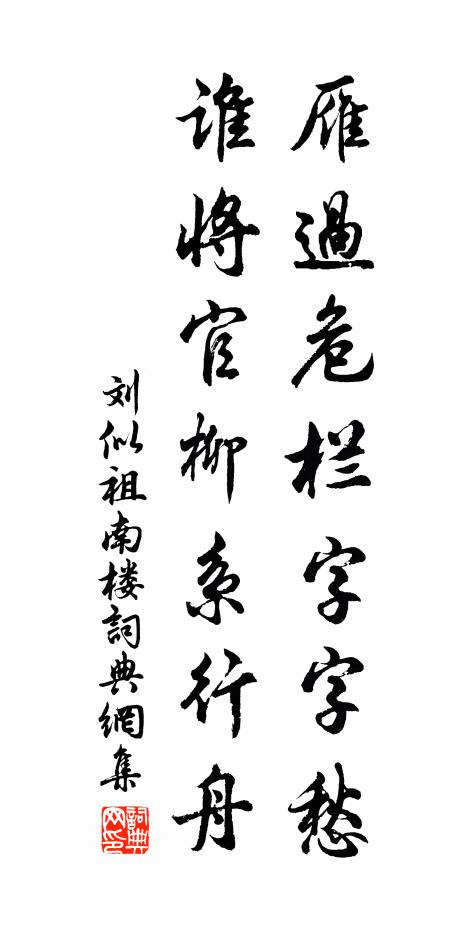 雁過危栏字字愁
谁将官柳系行舟
刘似祖南楼詞典網集
詞典网印